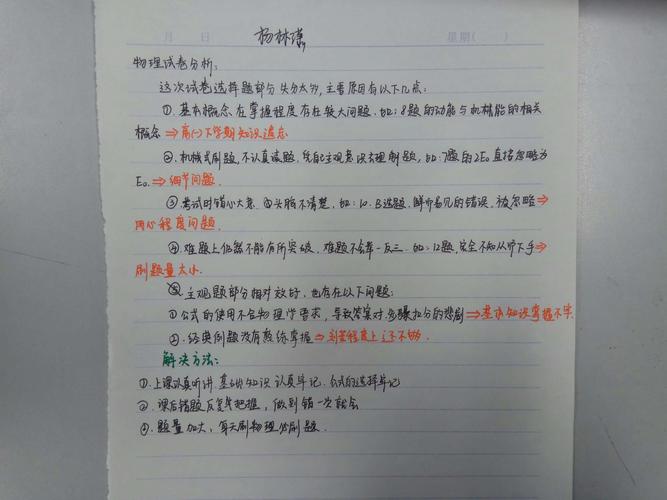 月 日 杨林潇 星期( )
物理试卷分析:
这次试卷选择题部分失分太多,主要原因有以下几点:
①.基本概念在掌握程度存在较大问题.如:8题的动能与机械能的相关
概念⇒高(一)下学期知识遗忘
②.机械式刷题,不认真读题,凭自主观意识去理解题,如:7题的2E₀直接忽略为
E₀.⇒细节问题.
③考试时粗心大意.头脑不清楚,如:10.B选题.鲜而易见的错误.被忽略⇒
用心程度问题.
④.难题上依然不能有所突破.难题不会举一反三.如:12题,完全不知从何下手⇒
刷题量太小.
主观题部分相对较好,也存在以下问题:
①公式的使用不合物理学要求,导致答案对,扣分的悲剧⇒基本知识掌握不牢.
②.经典例题没有熟练掌握⇒刻苦程度上还不够.
解决方法:
①.上课认真听讲.基础知识认真牢记.公式的选择牢记
②.课后错题反复来把握,做到错一次就会
③.题量加大,每天刷物理必刷题.